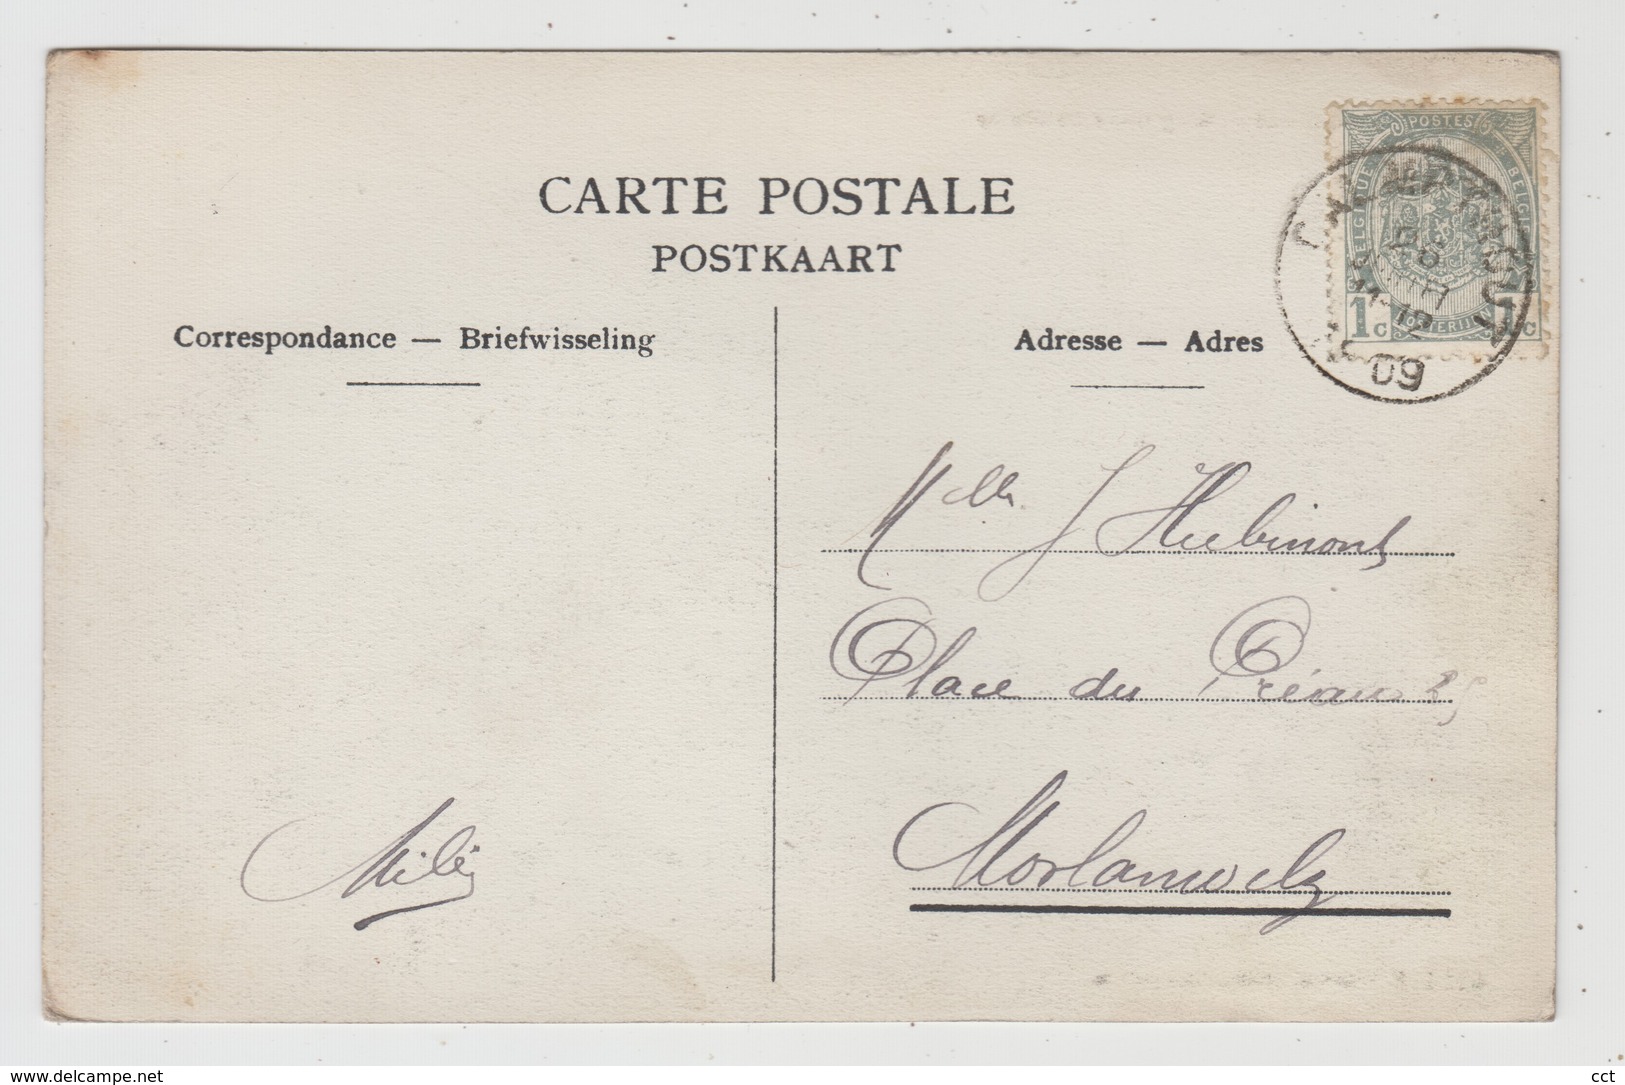 CARTE POSTALE
POSTKAART
Correspondance — Briefwisseling
Adresse — Adres
POSTES
BELGIQUE
BELGIE
1 c
1 c
26
11-12
09
Mlle J Hubinont
Place du Préau 25
Morlanwelz
delcampe.net
cct